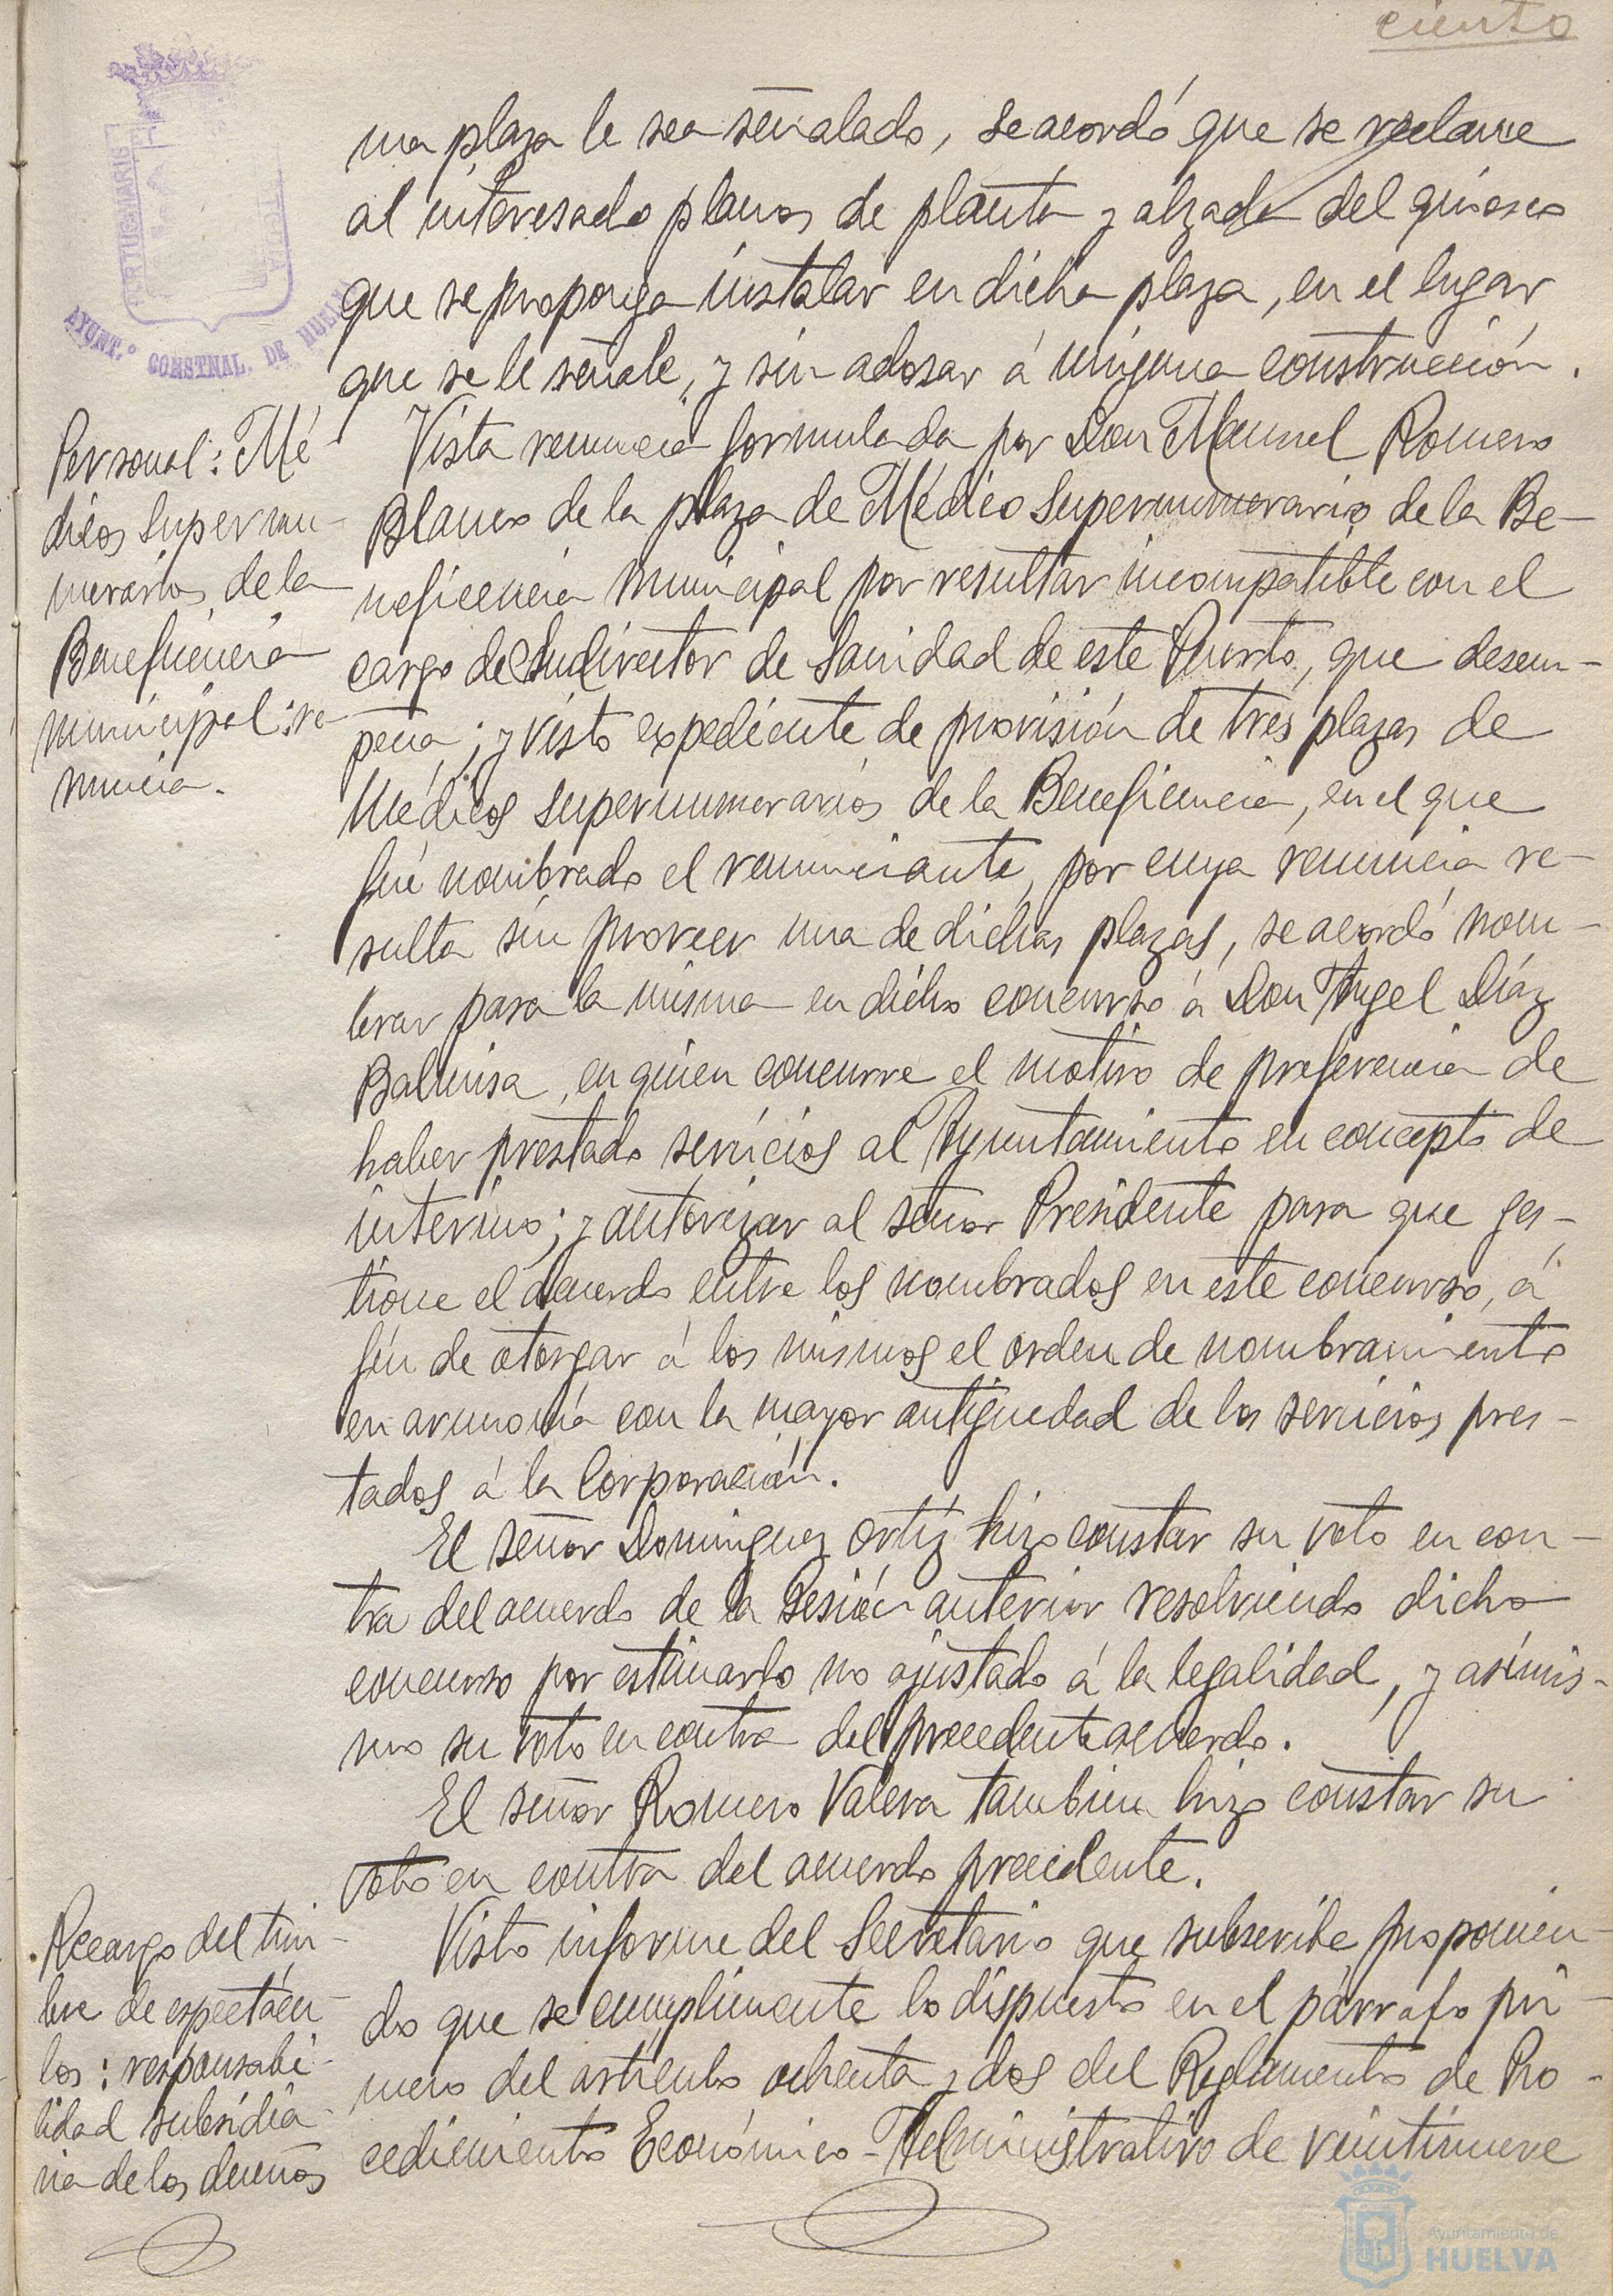 ciento
PORTUS MARIS
AYUNT.º CONSTNAL. DE HUELVA
una plaza le sea señalado, se acordó que se reclame
al interesado planos de planta y alzado del quiosco
que se proponga instalar en dicha plaza, en el lugar
que se le señale, y sin adosar á ninguna construcción.
Personal: Mé
dicos supernu-
merarios de la
Beneficencia
municipal: re-
nuncia.
Vista renuncia formulada por Don Manuel Romero
Blanco de la plaza de Médico Supernumerario de la Be-
neficencia Municipal por resultar incompatible con el
cargo de Subdirector de Sanidad de este Puerto, que desem-
peña; y visto expediente de provisión de tres plazas de
Médicos supernumerarios de la Beneficencia, en el que
fué nombrado el renunciante, por cuya renuncia re-
sulta sin proveer una de dichas plazas, se acordó nom-
brar para la misma en dicho concurso á Don Angel Díaz
Balmisa, en quien concurre el motivo de preferencia de
haber prestado servicios al Ayuntamiento en concepto de
interino; y autorizar al señor Presidente para que ges-
tione el acuerdo entre los nombrados en este concurso, á
fin de otorgar á los mismos el orden de nombramiento
en armonía con la mayor antigüedad de los servicios pres-
tados á la Corporación.
El señor Dominguez Ortiz hizo constar su voto en con-
tra del acuerdo de la Sesión anterior resolviendo dicho
concurso por estimarlo no ajustado á la legalidad, y asimis-
mo su voto en contra del precedente acuerdo.
El señor Romero Valera tambien hizo constar su
voto en contra del acuerdo precedente.
Recargo del tim-
bre de espectácu-
los: responsabi-
lidad subsidia-
ria de los dueños
Visto informe del Secretario que subscribe proponien-
do que se cumplimente lo dispuesto en el párrafo pri-
mero del artículo ochenta y dos del Reglamento de Pro-
cedimiento Económico-Administrativo de veintinueve
Ayuntamiento de
HUELVA